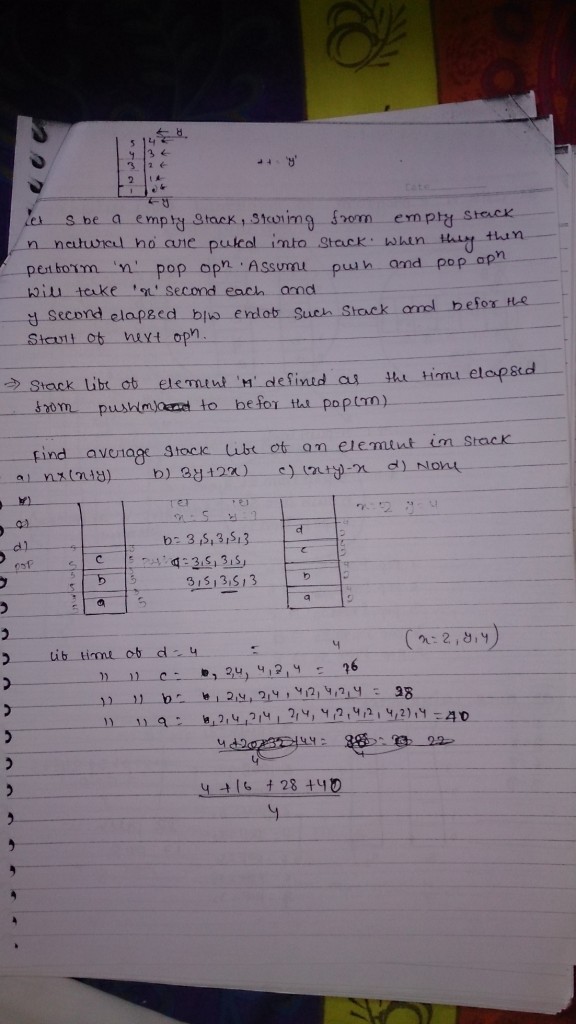 ← y
5 4 ←
4 3 ←
3 2 ←
2 1 ←
1
← y
S be a empty Stack, Staring from empty stack
n natural no are puked into stack. when they then
perform 'n' pop opn. Assume push and pop opn
will take 'x' second each and
y second elapsed b/w endof such Stack and befor the
Start of next opn.
⇒ Stack life of element 'M' defined as the time elapsed
from push(m) to befor the pop(m)
Find average stack life of an element in stack
a) nx(n+y) b) 3y+2x) c) (x+y)-x d) None
x=5 x=2 y=4
b= 3,5,3,5,3 d
c a=3,5,3,5, c
b 3,5,3,5,3 b
a a
lif time of d=4 = 4 (x=2, y,4)
" " c= 2,4,4,2,4 = 16
" " b= 2,4,2,4,4,2,4,2,4 = 28
" " a= 2,4,2,4,2,4,4,2,4,2,4,2),4 = 40
+44= = 22
4
4 +16 +28 +40
4